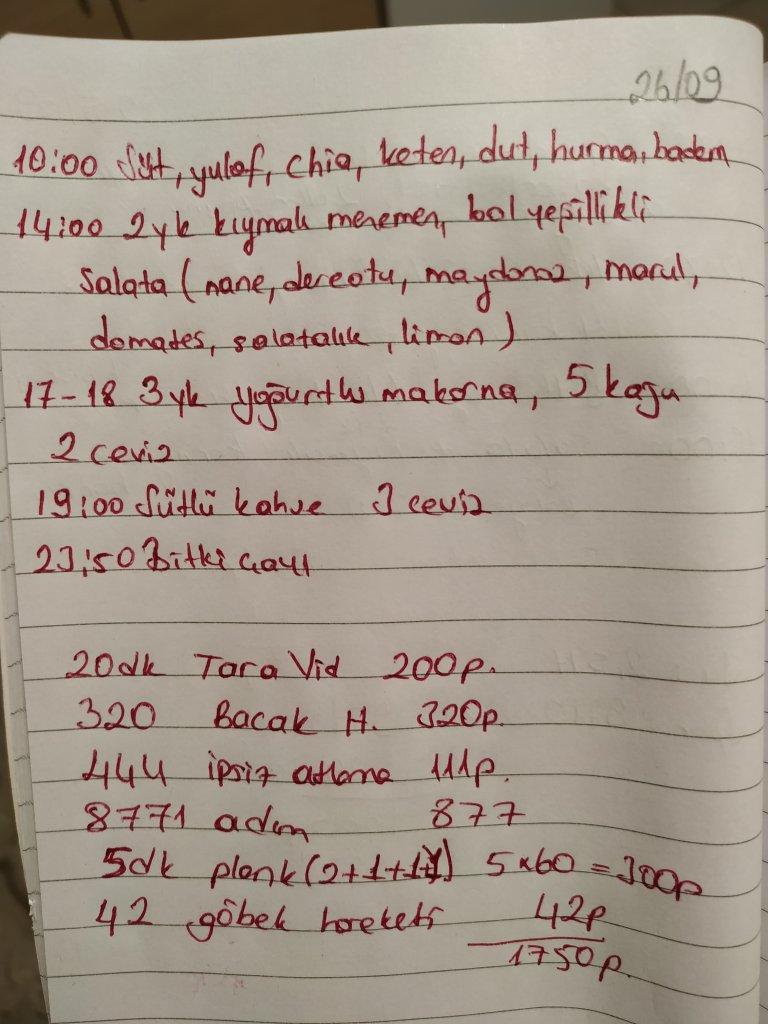 26/09
10:00 Süt, yulaf, chia, keten, dut, hurma, badem
14:00 2yk kıymalı menemen, bol yeşillikli
salata (nane, dereotu, maydonoz, marul,
domates, salatalık, limon)
17-18 3yk yoğurtlu makarna, 5 kaju
2 ceviz
19:00 Sütlü kahve 3 ceviz
23:50 Bitki çayı
20dk Tara Vid 200p.
320 Bacak H. 320p.
444 ipsiz atlama 111p.
8771 adım 877
5dk plank (2+1+1+1) 5x60=300p
42 göbek hareketi 42p
1750p.